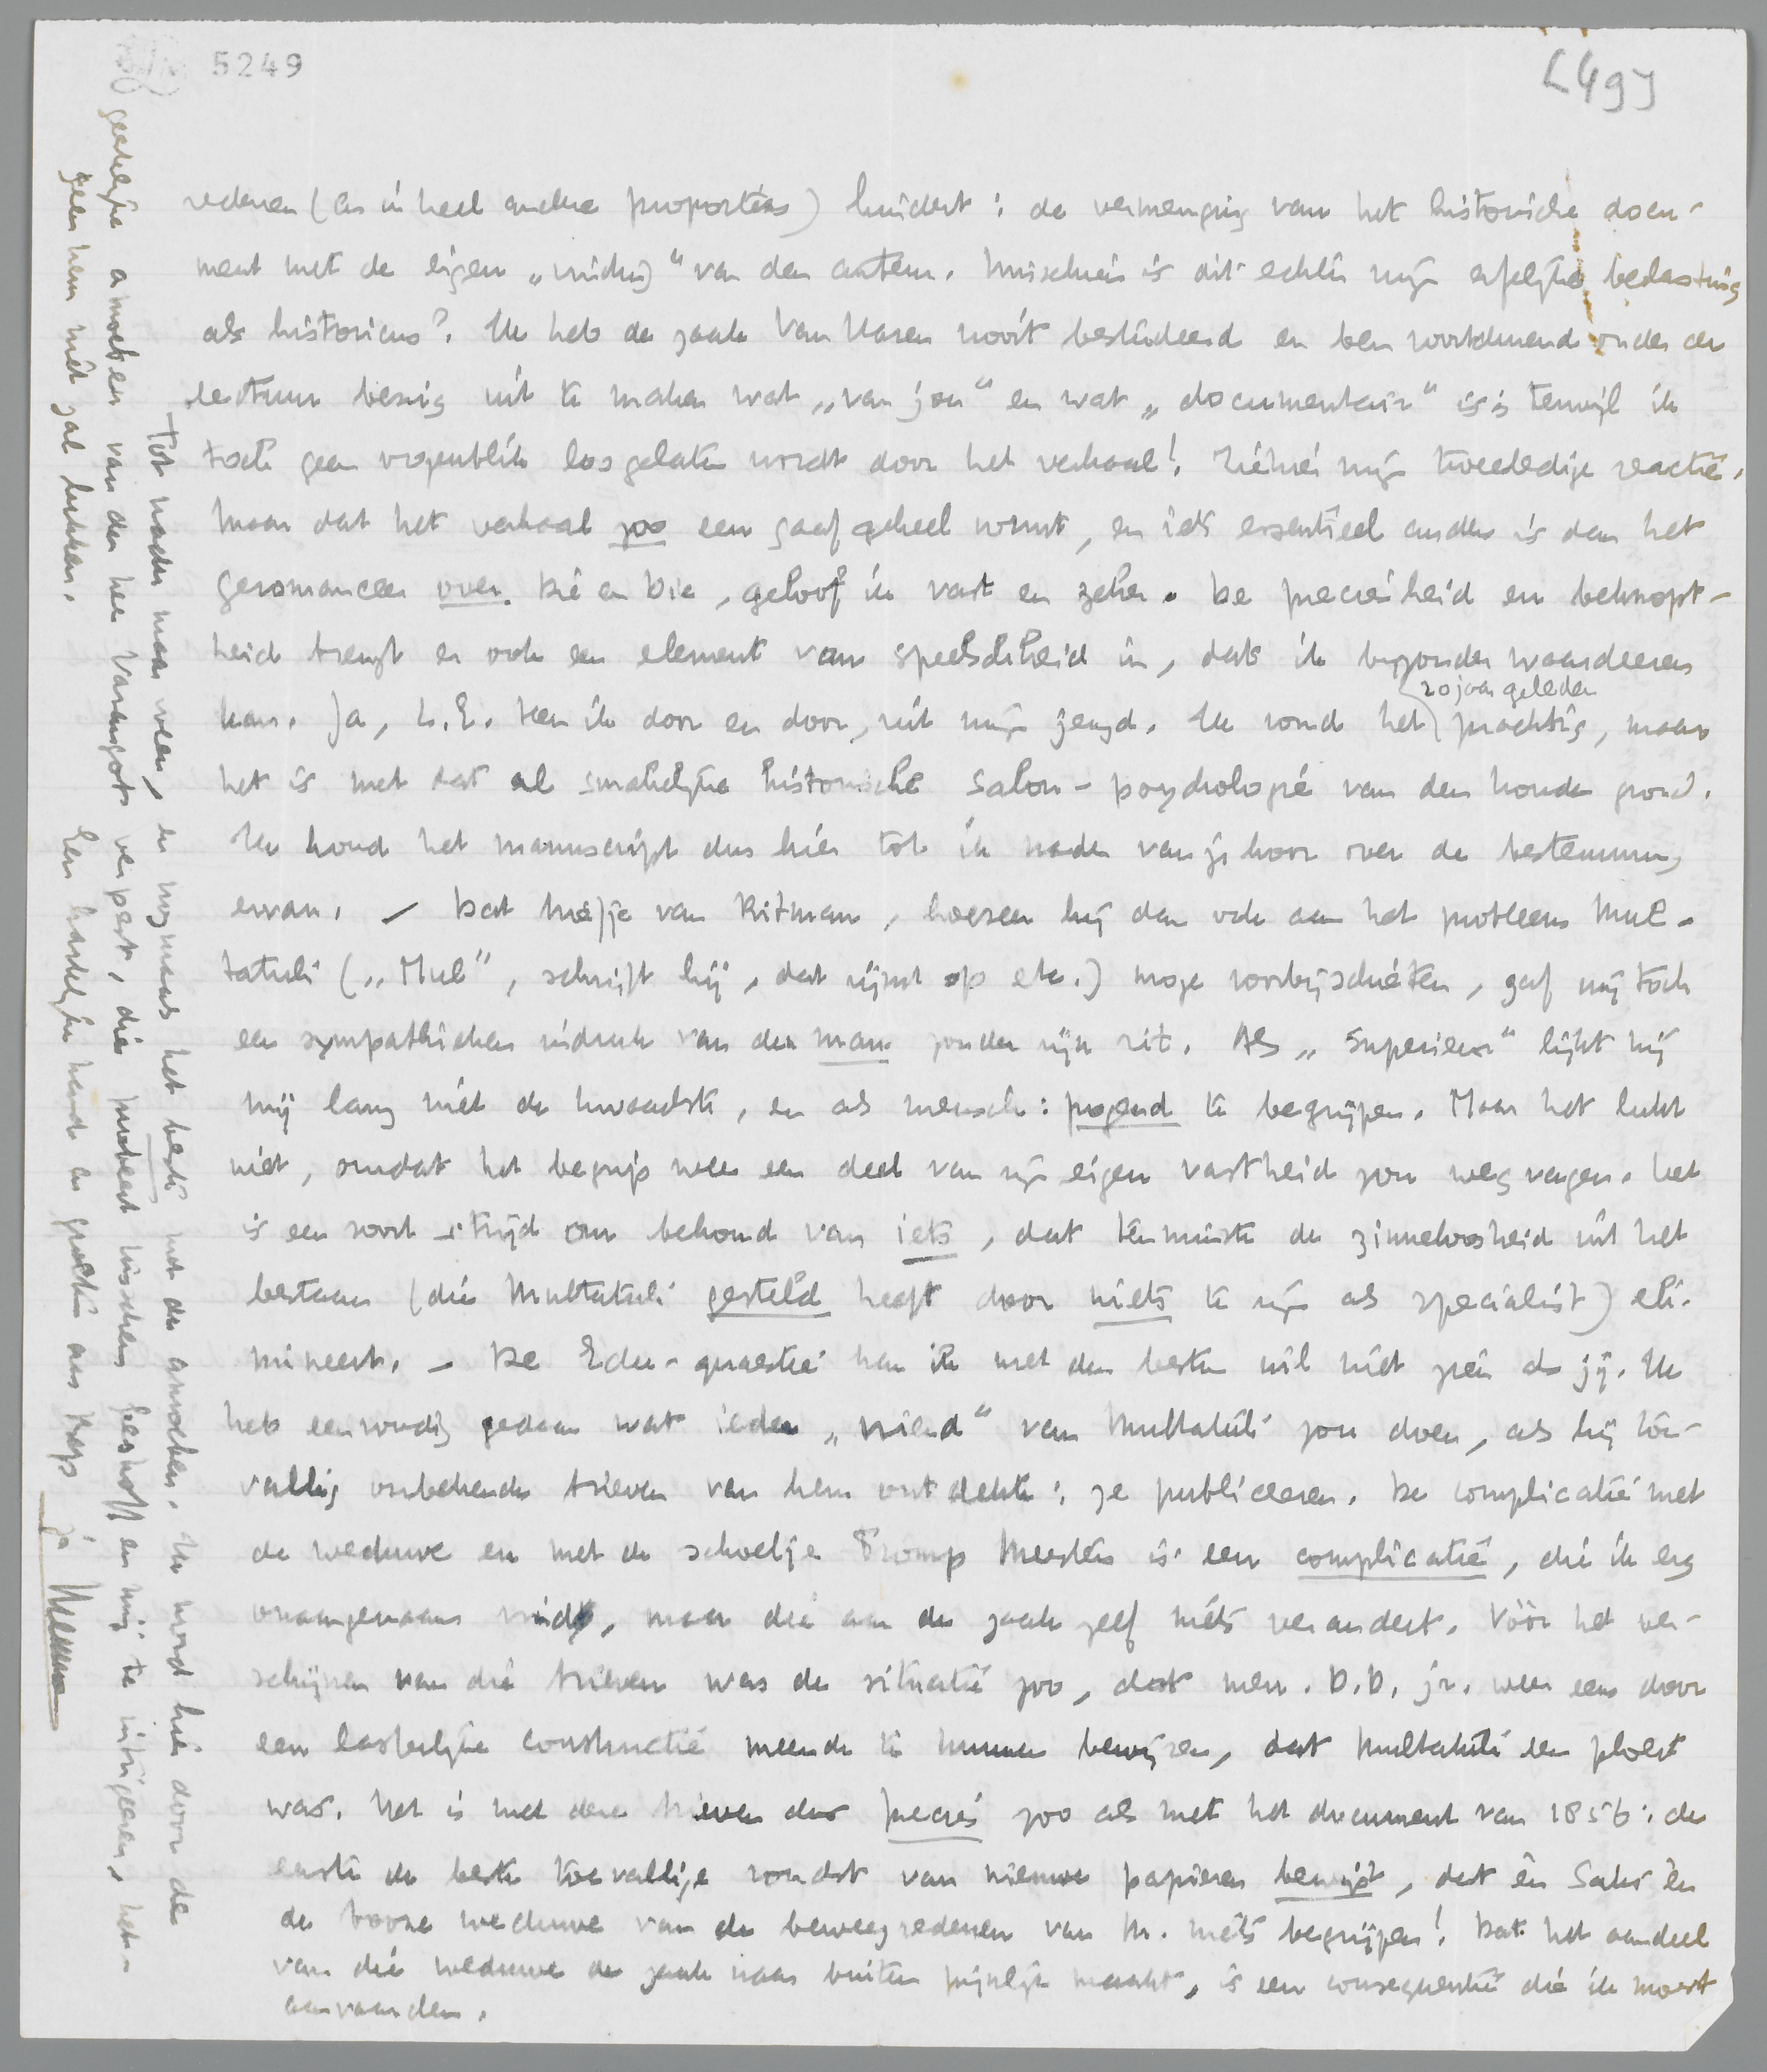 5249
[49]
redenen (en in heel andere proporties) hindert: de vermenging van het historische docu-
ment met de eigen „visie" van den auteur. Misschien is dit echter mijn erfelijke belasting
als historicus? Ik heb de zaak Van Haren nooit bestudeerd en ben voortdurend onder de
lectuur bezig uit te maken wat „van jou" en wat „documentair" is; terwijl ik
toch geen oogenblik losgelaten wordt door het verhaal! Ziehier mijn tweeledige reactie.
Maar dat het verhaal zoo een gaaf geheel vormt, en iets essentieel anders is dan het
geromanceer over Die en Die, geloof ik vast en zeker. De preciesheid en beknopt-
heid brengt er ook een element van speelschheid in, dat ik bijzonder waardeeren
kan. Ja, L.E. ken ik door en door, uit mijn jeugd. Ik vond het (20 jaar geleden) prachtig, maar
het is met dat al smakelijke historische salon-psychologie van den kouden grond.
Ik houd het manuscript dus hier tot ik nader van je hoor over de bestemming
ervan. — Dat briefje van Ritman, hoezeer hij dan ook aan het probleem Mul-
tatuli („Mul", schrijft hij, dat rijmt op etc.) moge voorbijschieten, gaf mij toch
een sympathieken indruk van den man zonder zijn rit. Als „superieur" lijkt hij
mij lang niet de kwaadste, en als mensch: pogend te begrijpen. Maar het lukt
niet, omdat het begrip weer een deel van zijn eigen vastheid zou wegvagen. Het
is een soort strijd om behoud van iets, dat tenminste de zinneloosheid uit het
bestaan (die Multatuli gesteld heeft door niets te zijn als specialist) eli-
mineert. — De Edu-quaestie kan ik met den besten wil niet zien als jij. Ik
heb eenvoudig gedaan wat ieder „vriend" van Multatuli zou doen, als hij toe-
vallig onbekende brieven van hem ontdekte: ze publiceeren. De complicatie met
de weduwe en met de schoelje Tromp Meesters is een complicatie, die ik erg
onaangenaam vind, maar die aan de zaak zelf niets verandert. Vóór het ver-
schijnen van die brieven was de situatie zoo, dat mevr. D.D. jr. weer eens door
een lasterlijke constructie meende te kunnen bewijzen, dat Multatuli een ploert
was. Het is met deze brieven dus precies zoo als met het document van 1856: de
eerste de beste toevallige vondst van nieuwe papieren bewijst, dat èn Saks èn
de booze weduwe van de beweegredenen van M. niets begrijpen! Dat het aandeel
van die weduwe de zaak naar buiten pijnlijk maakt, is een consequentie die ik moest
aanvaarden.
Tot nader maar weer, en nogmaals het beste met de amoeben. Ik word hier door de
geestelijke amoeben van den heer Varangot verpest, die probeert tusschen Greshoff en mij te intrigeeren, het-
geen hem niet zal lukken.
Een hartelijke hand en groeten aan Bep
je Menno